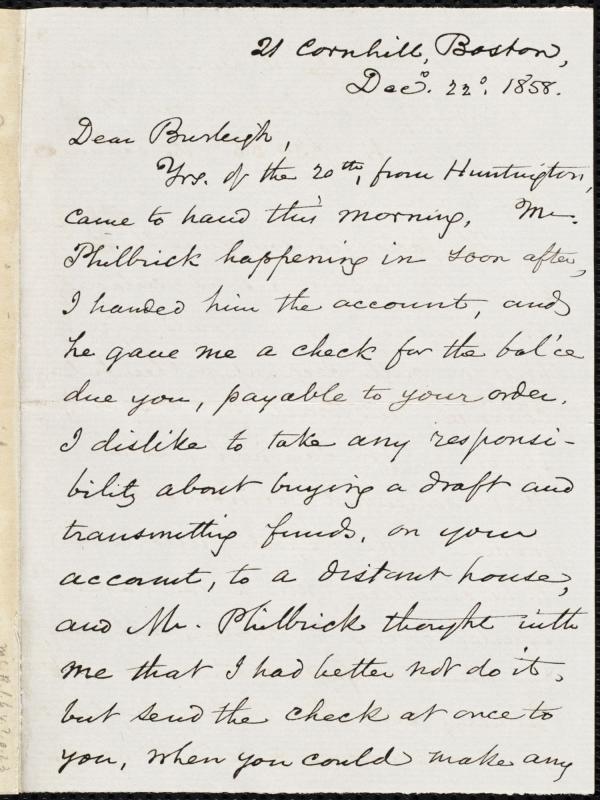 21 Cornhill, Boston,
Dec. 22, 1858.
Dear Burleigh,
Yrs. of the 20th, from Huntington,
came to hand this morning. Mr.
Philbrick happening in soon after,
I handed him the account, and
he gave me a check for the bal'ce
due you, payable to your order.
I dislike to take any responsi-
bility about buying a draft and
transmitting funds, on your
account, to a distant house,
and Mr. Philbrick thought with
me that I had better not do it,
but send the check at once to
you, when you could make any